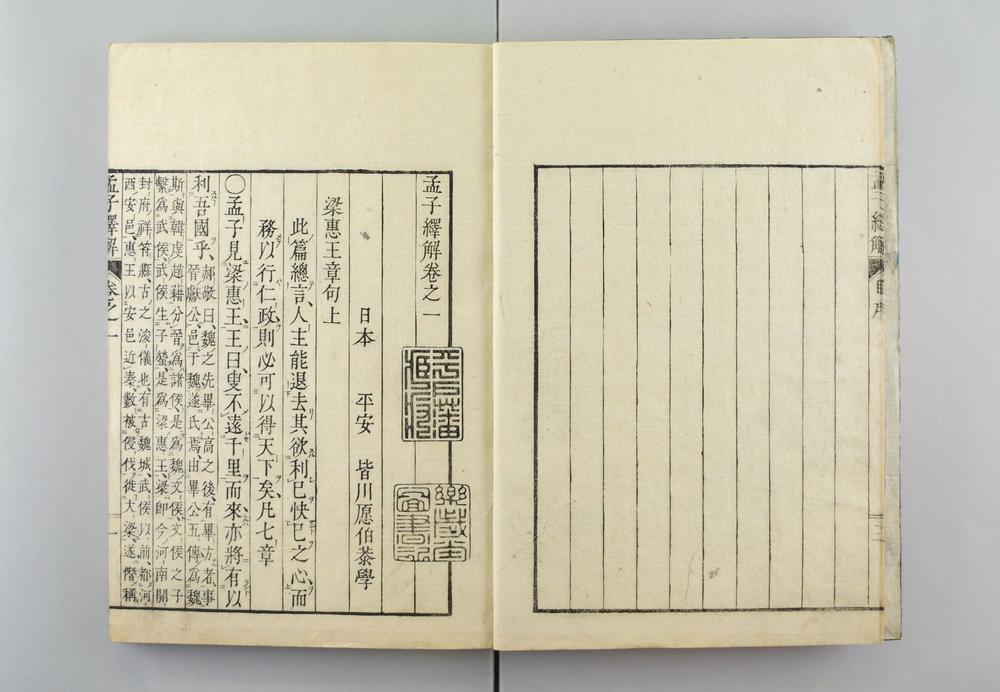 孟子繹解
自序
三
孟子繹解卷之一
日本 平安 皆川愿伯恭學
梁惠王章句上
此篇總言、人主能退去其欲利己快己之心、而
務以行仁政、則必可以得天下矣、凡七章
○孟子見梁惠王、王曰、叟不遠千里而來、亦將有以
利吾國乎、
郝敬曰、魏之先畢公高之後、有畢万者、事
晉獻公、邑于魏、遂氏焉、由畢公五傳爲魏
斯、與韓虔趙藉分晉、爲諸侯、是爲魏文侯、文侯之子
繫爲武侯、武侯生子罃、是爲梁惠王、梁即今河南開
封府祥符縣、古之浚儀也、有古魏城、武侯以前、都河
西安邑、惠王以安邑近秦、數被侵伐、徙大梁、遂僭稱
孟子繹解
卷之一
一